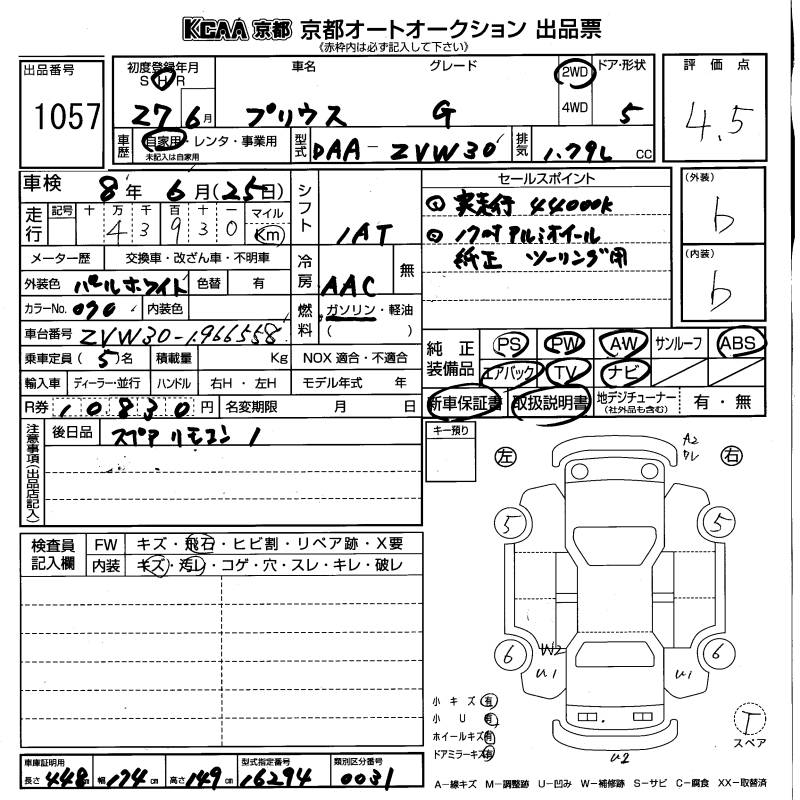 KCAA 京都 京都オートオークション 出品票
《赤枠内は必ず記入して下さい》
出品番号 1057
初度登録年月 S H R 27 6月
車名 プリウス
グレード G
2WD 4WD
ドア・形状 5
評価点 4.5
車歴 自家用・レンタ・事業用
未記入は自家用
型式 DAA-ZVW30
排気 1.79L CC
車検 8年 6月(25日)
走行 記号 十 万 千 百 十 一 マイル
4 3 9 3 0 Km
メーター歴 交換車・改ざん車・不明車
外装色 パールホワイト 色替 有
カラーNo. 070 内装色
車台番号 ZVW30-1966558
乗車定員 (5)名 積載量 Kg NOX 適合・不適合
輸入車 ディーラー・並行 ハンドル 右H・左H モデル年式 年
R券 10830円 名変期限 月 日
シフト 1AT
冷房 AAC 無
燃料 ガソリン・軽油
( )
セールスポイント
① 実走行 44000K
② 17吋アルミホイール
純正 ツーリング用
(外装) b
(内装) b
純正装備品 PS PW AW サンルーフ ABS
エアバック TV ナビ
新車保証書 取扱説明書 地デジチューナー (社外品も含む) 有・無
注意事項(出品店記入)
後日品 スペアリモコン 1
キー預り
検査員記入欄 FW キズ・飛石・ヒビ割・リペア跡・X要
内装 キズ・汚レ・コゲ・穴・スレ・キレ・破レ
左 右
A2
ワレ
5 5
6 W2 6
U1 U1
U2
小キズ 有
小U 有
ホイールキズ 有
ドアミラーキズ 有
T
スペア
車庫証明用 長さ 448cm 幅 174cm 高さ 149cm
型式指定番号 16294
類別区分番号 0031
A-線キズ M-調整跡 U-凹み W-補修跡 S-サビ C-腐食 XX-取替済